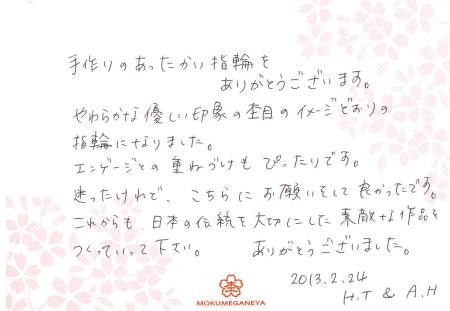 手作りのあったかい指輪を
ありがとうございます。
やわらかな優しい印象の杢目のイメージどおりの
指輪になりました。
エンゲージとの重ねづけもぴったりです。
迷ったけれど、こちらにお願いをして良かったです。
これからも、日本の伝統を大切にした素敵な作品を
つくっていって下さい。 ありがとうございました。
2013.2.24
H.T & A.H
MOKUMEGANEYA